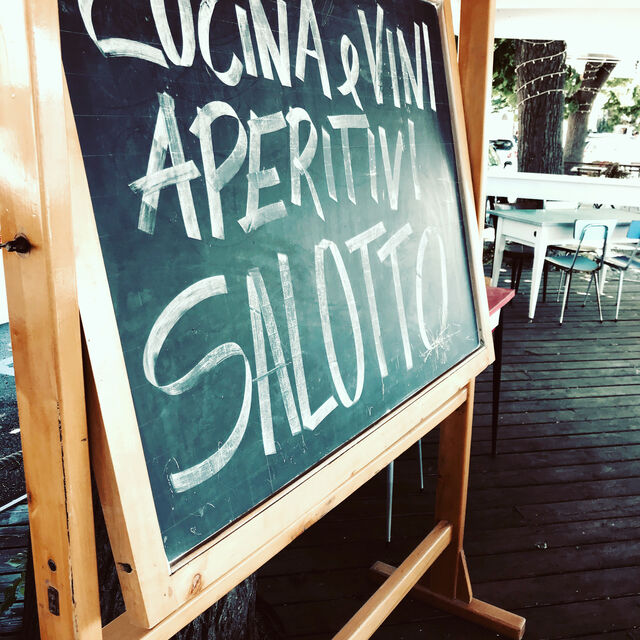 CUCINA e VINI
APERITIVI
SALOTTO